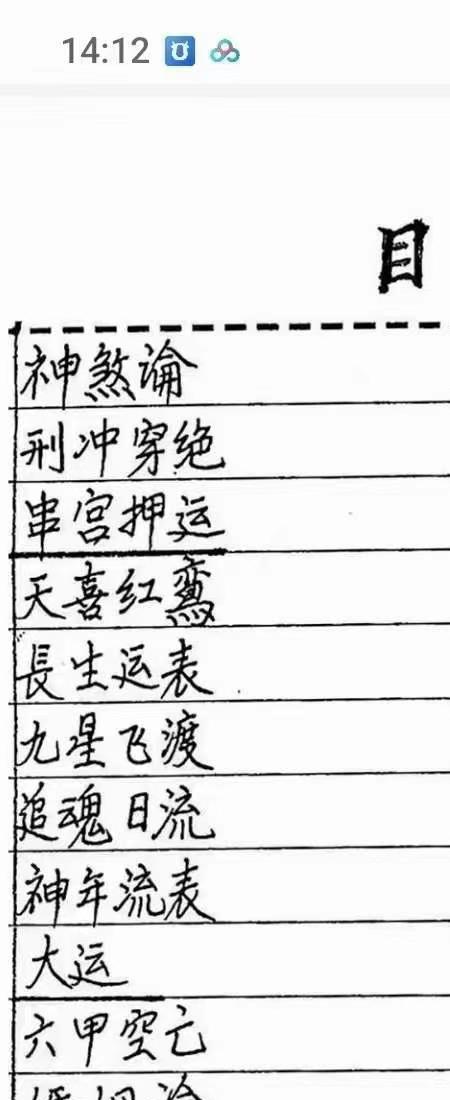 14:12
目
神煞論
刑冲穿绝
串宫押运
天喜红鸾
長生运表
九星飞渡
追魂日流
神年流表
大运
六甲空亡